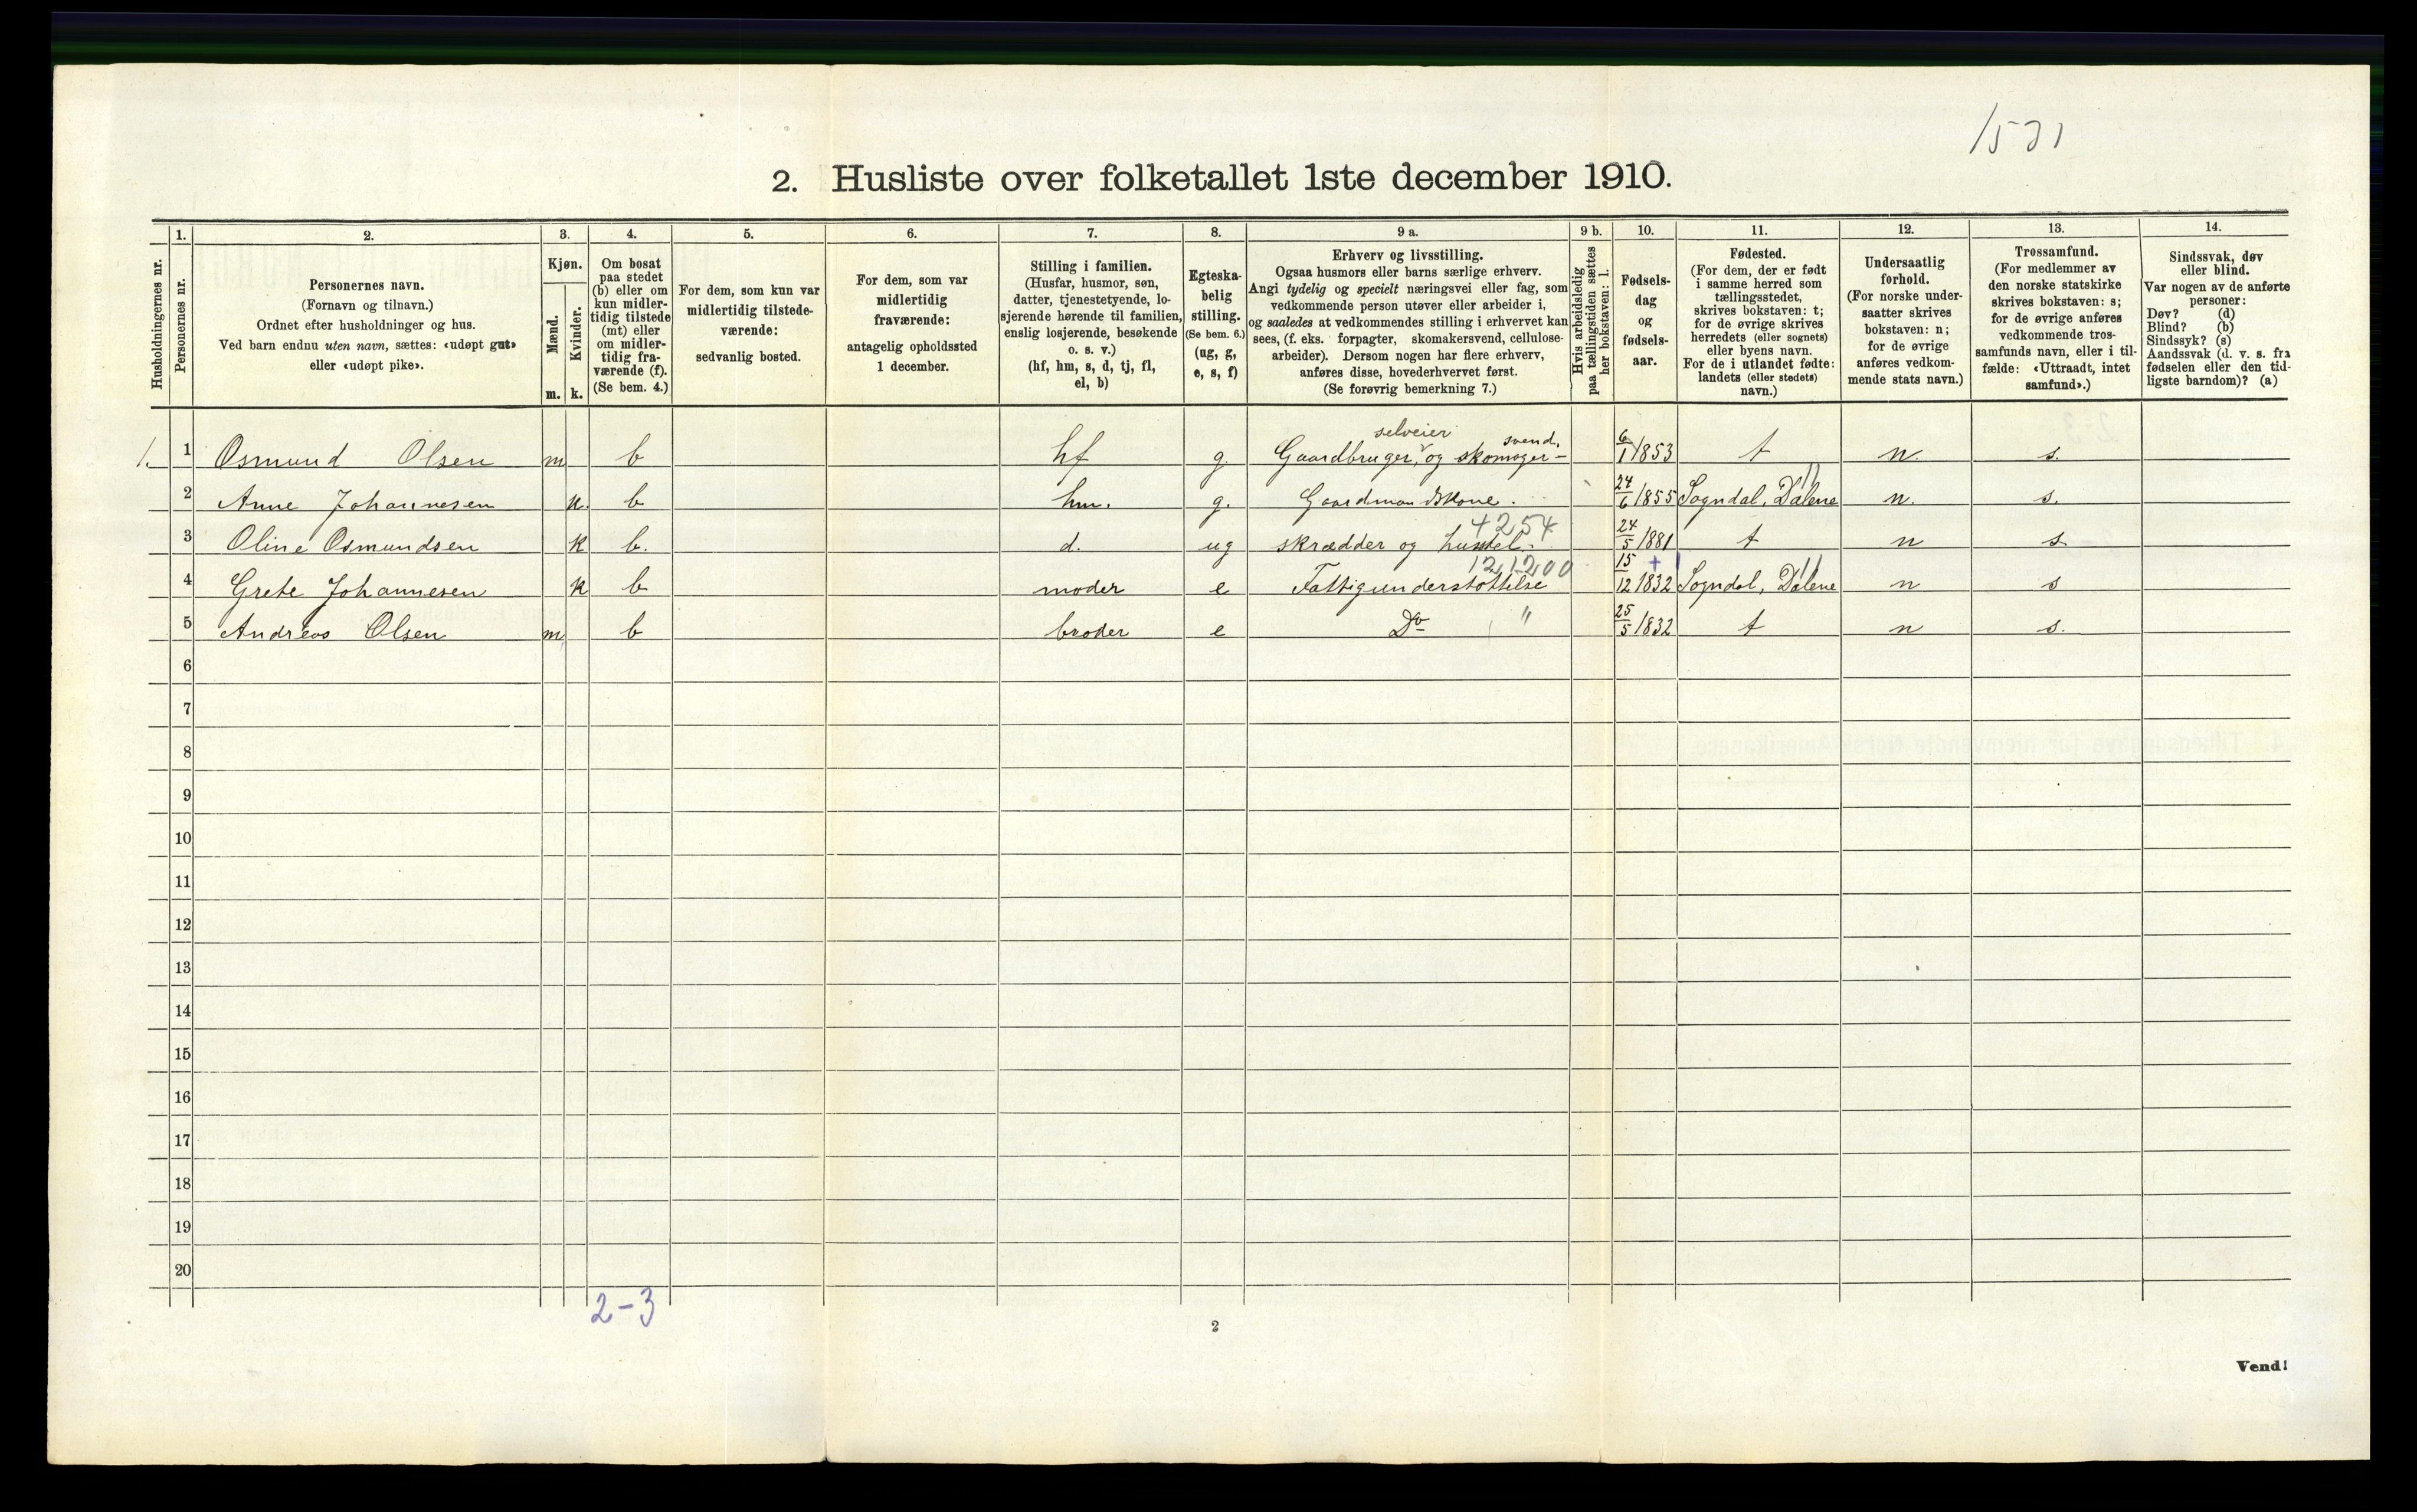 1531
2. Husliste over folketallet 1ste december 1910.
Husholdningernes nr.
1.
Personernes nr.
2.
Personernes navn.
(Fornavn og tilnavn.)
Ordnet efter husholdninger og hus.
Ved barn endnu uten navn, sættes: «udøpt gut»
eller «udøpt pike».
3.
Kjøn.
Mænd.
Kvinder.
m. k.
4.
Om bosat
paa stedet
(b) eller om
kun midler-
tidig tilstede
(mt) eller
om midler-
tidig fra-
værende (f).
(Se bem. 4.)
5.
For dem, som kun var
midlertidig tilstede-
værende:
sedvanlig bosted.
6.
For dem, som var
midlertidig
fraværende:
antagelig opholdssted
1 december.
7.
Stilling i familien.
(Husfar, husmor, søn,
datter, tjenestetyende, lo-
sjerende hørende til familien,
enslig losjerende, besøkende
o. s. v.)
(hf, hm, s, d, tj, fl,
el, b)
8.
Egteska-
belig
stilling.
(Se bem. 6.)
(ug, g,
e, s, f)
9 a.
Erhverv og livsstilling.
Ogsaa husmors eller barns særlige erhverv.
Angi tydelig og specielt næringsvei eller fag, som
vedkommende person utøver eller arbeider i,
og saaledes at vedkommendes stilling i erhvervet kan
sees, (f. eks. forpagter, skomakersvend, cellulose-
arbeider). Dersom nogen har flere erhverv,
anføres disse, hovederhvervet først.
(Se forøvrig bemerkning 7.)
9 b.
Hvis arbeidsledig
paa tællingstiden sættes
her bokstaven: l.
10.
Fødsels-
dag
og
fødsels-
aar.
11.
Fødested.
(For dem, der er født
i samme herred som
tællingsstedet,
skrives bokstaven: t;
for de øvrige skrives
herredets (eller sognets)
eller byens navn.
For de i utlandet fødte:
landets (eller stedets)
navn.)
12.
Undersaatlig
forhold.
(For norske under-
saatter skrives
bokstaven: n;
for de øvrige
anføres vedkom-
mende stats navn.)
13.
Trossamfund.
(For medlemmer av
den norske statskirke
skrives bokstaven: s;
for de øvrige anføres
vedkommende tros-
samfunds navn, eller i til-
fælde: «Uttraadt, intet
samfund».)
14.
Sindssvak, døv
eller blind.
Var nogen av de anførte
personer:
Døv? (d)
Blind? (b)
Sindssyk? (s)
Aandssvak (d. v. s. fra
fødselen eller den tid-
ligste barndom)? (a)
selveier svend.
1. 1 Osmund Olsen m b hf g. Gaardbruger, og skomager- 6/1 1853 t n. s.
2 Anne Johannesen k. b hm. g. Gaardmandskone. 24/6 1855 Sogndal, Dalene n. s.
4254
3 Oline Osmundsen k b. d. ug skrædder og husstel. 24/5 1881 t n s.
12,12,00 +1
4 Grete Johannesen k b moder e Fattigunderstøttelse 15/12 1832 Sogndal, Dalene n s
5 Andreas Olsen m b broder e Do " 25/5 1832 t n s.
6
7
8
9
10
11
12
13
14
15
16
17
18
19
20
2-3
2
Vend!